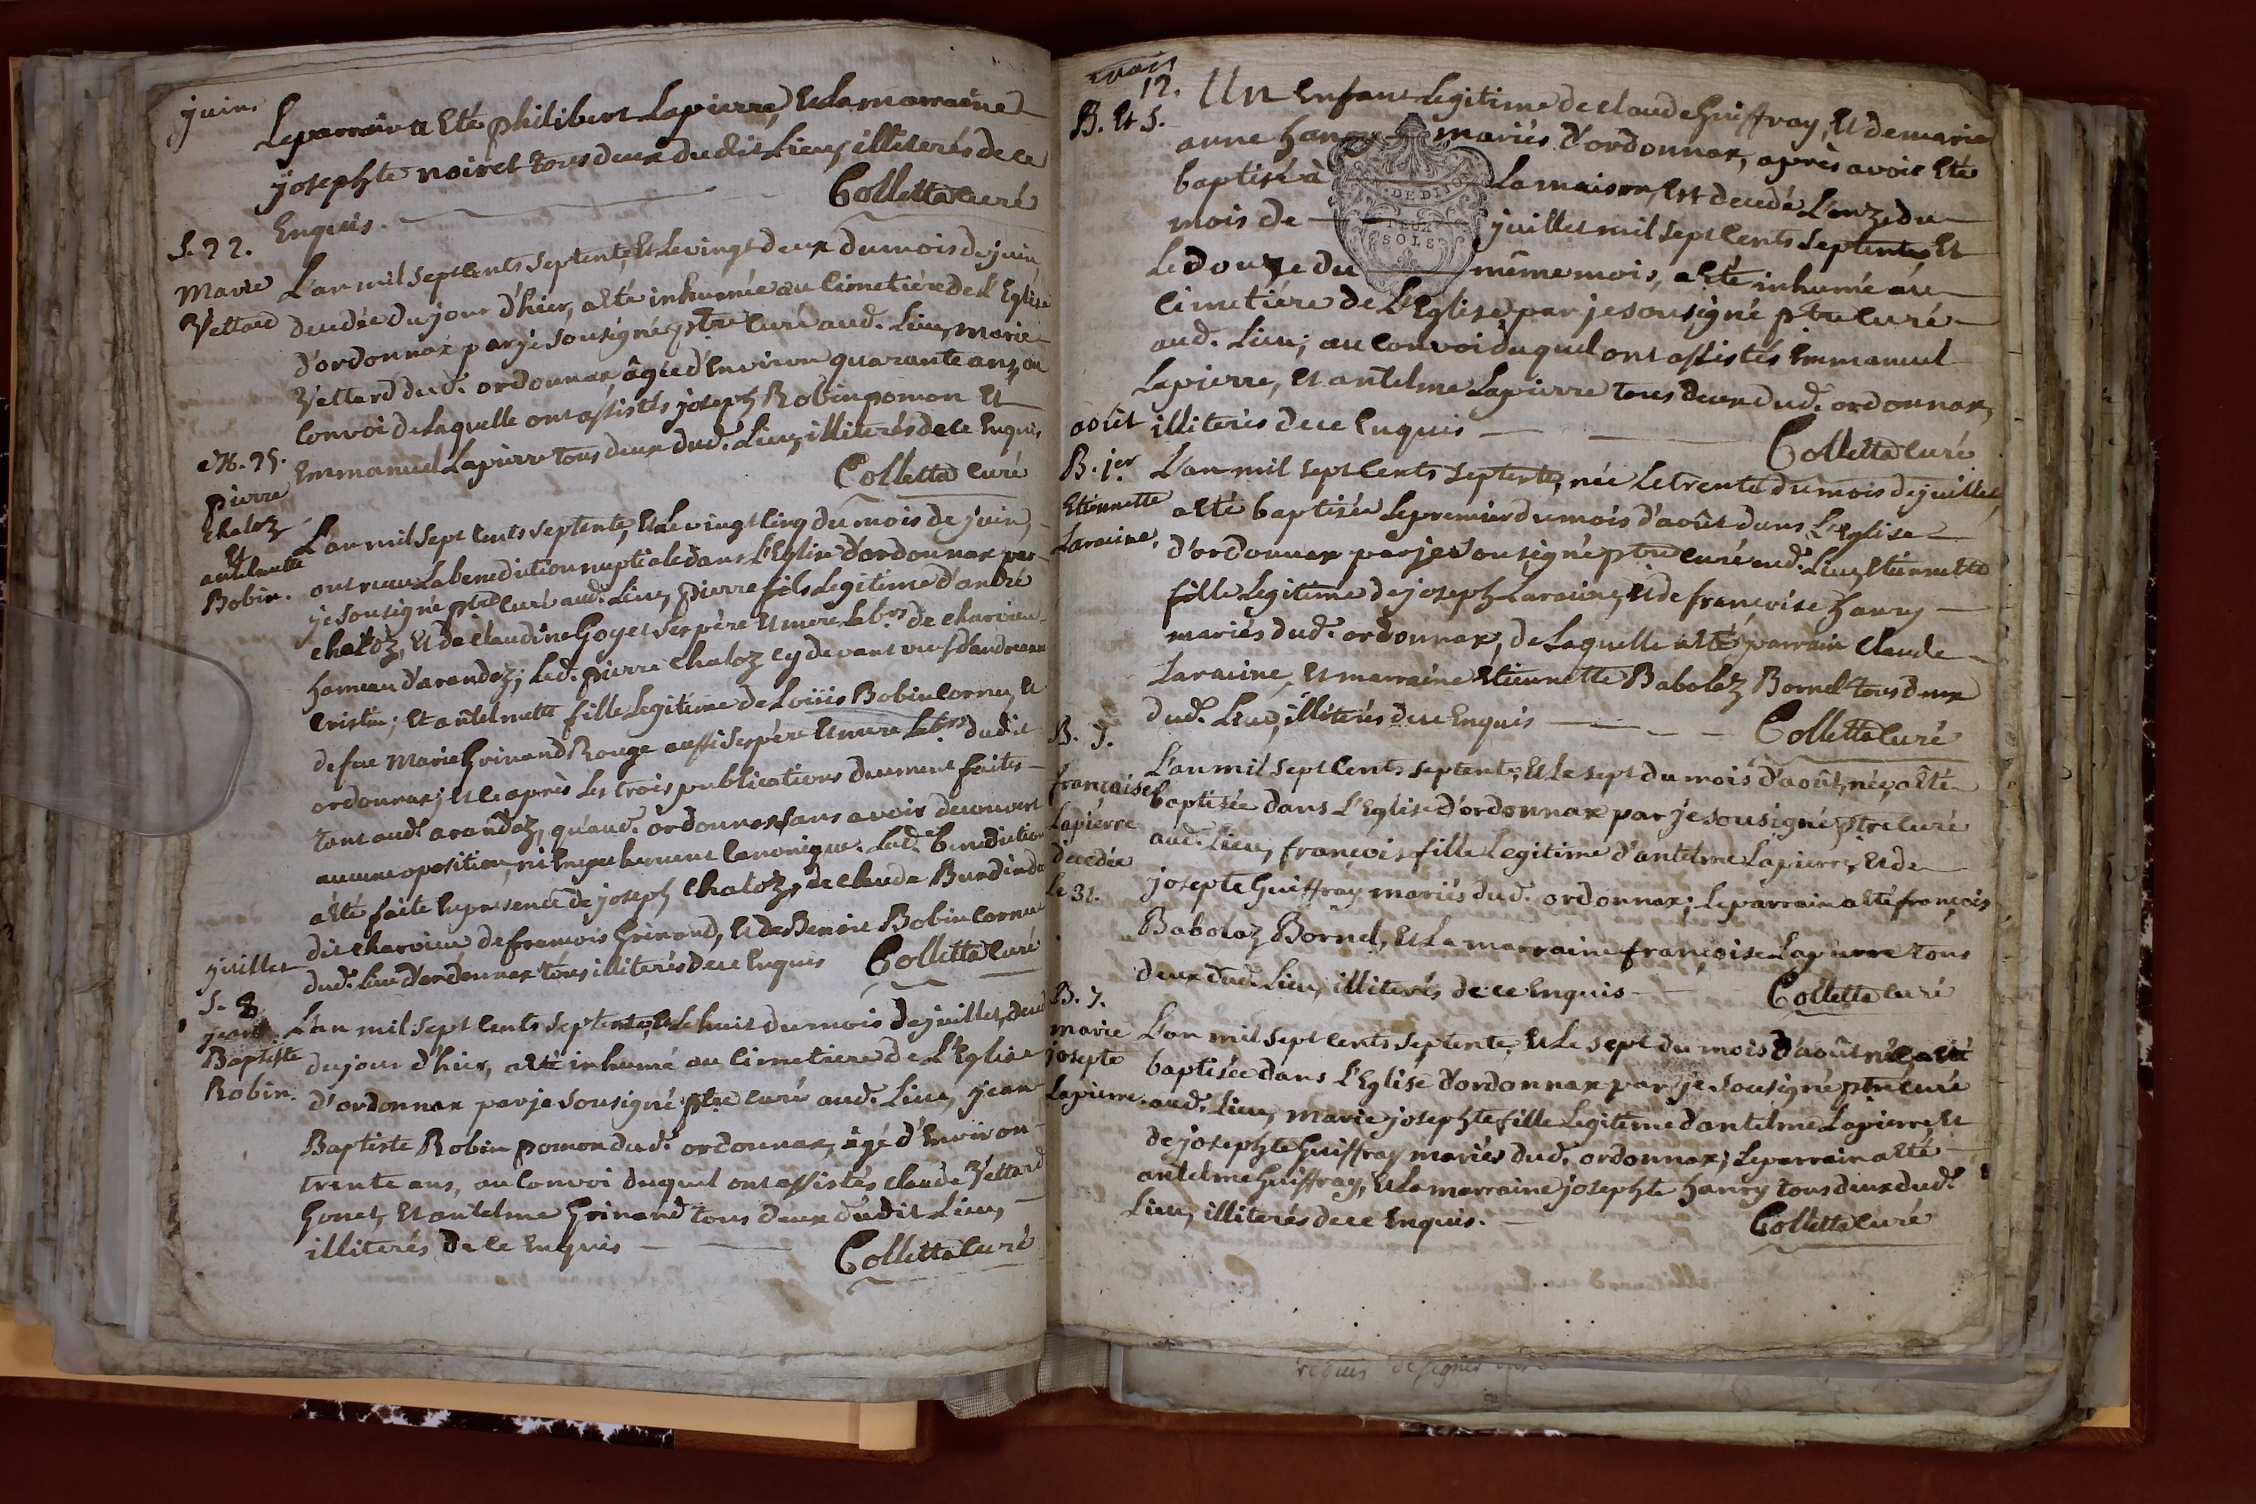 juin.
Le parrain a Eté philibert Lapierre, Et La marraine
josephte noiret tous deux dudit Lieu, illiterés de ce
Enquis. Colletta curé
S. 22.
Marie
Vettard
L'an mil sept cents septente, Et Le vingt deux du mois de juin
decedée du jour d'hier, a Eté inhumée au Cimetiére de L'Eglise
d'ordonnax par je sousigné ptre curé aud. Lieu, marie
Vettard dud. ordonnax, âgée d'Environ quarante ans, au
Convoi de Laquelle ont assistés joseph Robin pomon Et
Emmanuel Lapierre tous deux dud. Lieu, illiterés de ce Enquis
Colletta curé
M. 25.
pierre
Chaloz
Et
antelmette
Bobin.
L'an mil sept cents septente, Et Le vingt cinq du mois de juin,
ont reçu La benediction nuptiale dans L'Eglise d'ordonnax par
je sousigné ptre curé aud. Lieu, pierre fils Legitime d'andré
chaloz, Et de claudine Goyet ses père Et mere Lab.rs de charvieu
hameau d'arandaz; Led. pierre chaloz cy devant veuf
Cristin; Et antelmette fille Legitime de Loüis Bobin Cornu, Et
de feue Marie Grinand Rouge aussi ses père Et mere Lab.rs dudit
ordonnax; Et ce après Les trois publications duement faites
tant aud. arandaz, qu'aud. ordonnax sans avoir decouvert
aucune oposition, ni Empechement Canonique. Lad. benediction
a Eté faite En presence de joseph Chaloz, de claude Burdin
dit charvieu, de françois Grinand, Et de Benoit Bobin Cornu
dud. Lieu d'ordonnax tous illiterés de ce Enquis Colletta curé
juillet
S. 8.
jean
Baptiste
Robin.
L'an mil sept cents septente, Et Le huit du mois de juillet, decedé
du jour d'hier, a Eté inhumé au Cimetiere de L'Eglise
d'ordonnax par je sousigné ptre curé aud. Lieu, jean
Baptiste Robin pomon dud. ordonnax, âgé d'Environ
trente ans, au Convoi duquel ont assistés claude Vettard
Gonet, Et antelme Grinand tous deux dudit Lieu,
illiterés de ce Enquis Colletta curé
12.
B. Et S.
Un Enfant Legitime de claude Guiffray, Et de marie
anne hanry mariés d'ordonnax, après avoir Eté
baptisé à La maison, Est decedé L'onze du
mois de juillet mil sept cents septente, Et
Le douze du même mois, a Eté inhumé au
Cimetiére de L'Eglise par je sousigné ptre curé
aud. Lieu; au Convoi duquel ont assistés Emmanuel
Lapierre, Et antelme Lapierre tous deux dud. ordonnax,
illiterés de ce Enquis Colletta curé
DE DIJON
DEUX
SOLS
août
B. 1er.
Etiennette
Laracine.
L'an mil sept cents septente, née Le trente du mois de juillet,
a Eté baptisée Le premier du mois d'août dans L'Eglise
d'ordonnax par je sousigné ptre curé aud. Lieu, Etiennette
fille Legitime de joseph Laracine, Et de françoise hanry
mariés dud. ordonnax, de Laquelle a Eté parrain Claude
Laracine, Et marraine Etiennette Babolaz Bornel tous deux
dud. Lieu, illiterés de ce Enquis Colletta curé
B. 7.
françoise
Lapierre
decedée
Le 31.
L'an mil sept cents septente, Et Le sept du mois d'août, née, a Eté
baptisée dans L'Eglise d'ordonnax par je sousigné ptre curé
aud. Lieu, françoise fille Legitime d'antelme Lapierre, Et de
josepte Guiffray mariés dud. ordonnax; Le parrain a Eté françois
Babolaz Bornel, Et La marraine françoise Lapierre tous
deux dud. Lieu, illiterés de ce Enquis Colletta curé
B. 7.
marie
josepte
Lapierre.
L'an mil sept cents septente, Et Le sept du mois d'août née, a Eté
baptisée dans L'Eglise d'ordonnax par je sousigné ptre curé
aud. Lieu, Marie josephte fille Legitime d'antelme Lapierre, Et
de josephte Guiffray mariés dud. ordonnax; Le parrain a Eté
antelme Guiffray, Et La marraine josephte hanry tous deux dud.
Lieu, illiterés de ce Enquis. Colletta curé
requis de signer